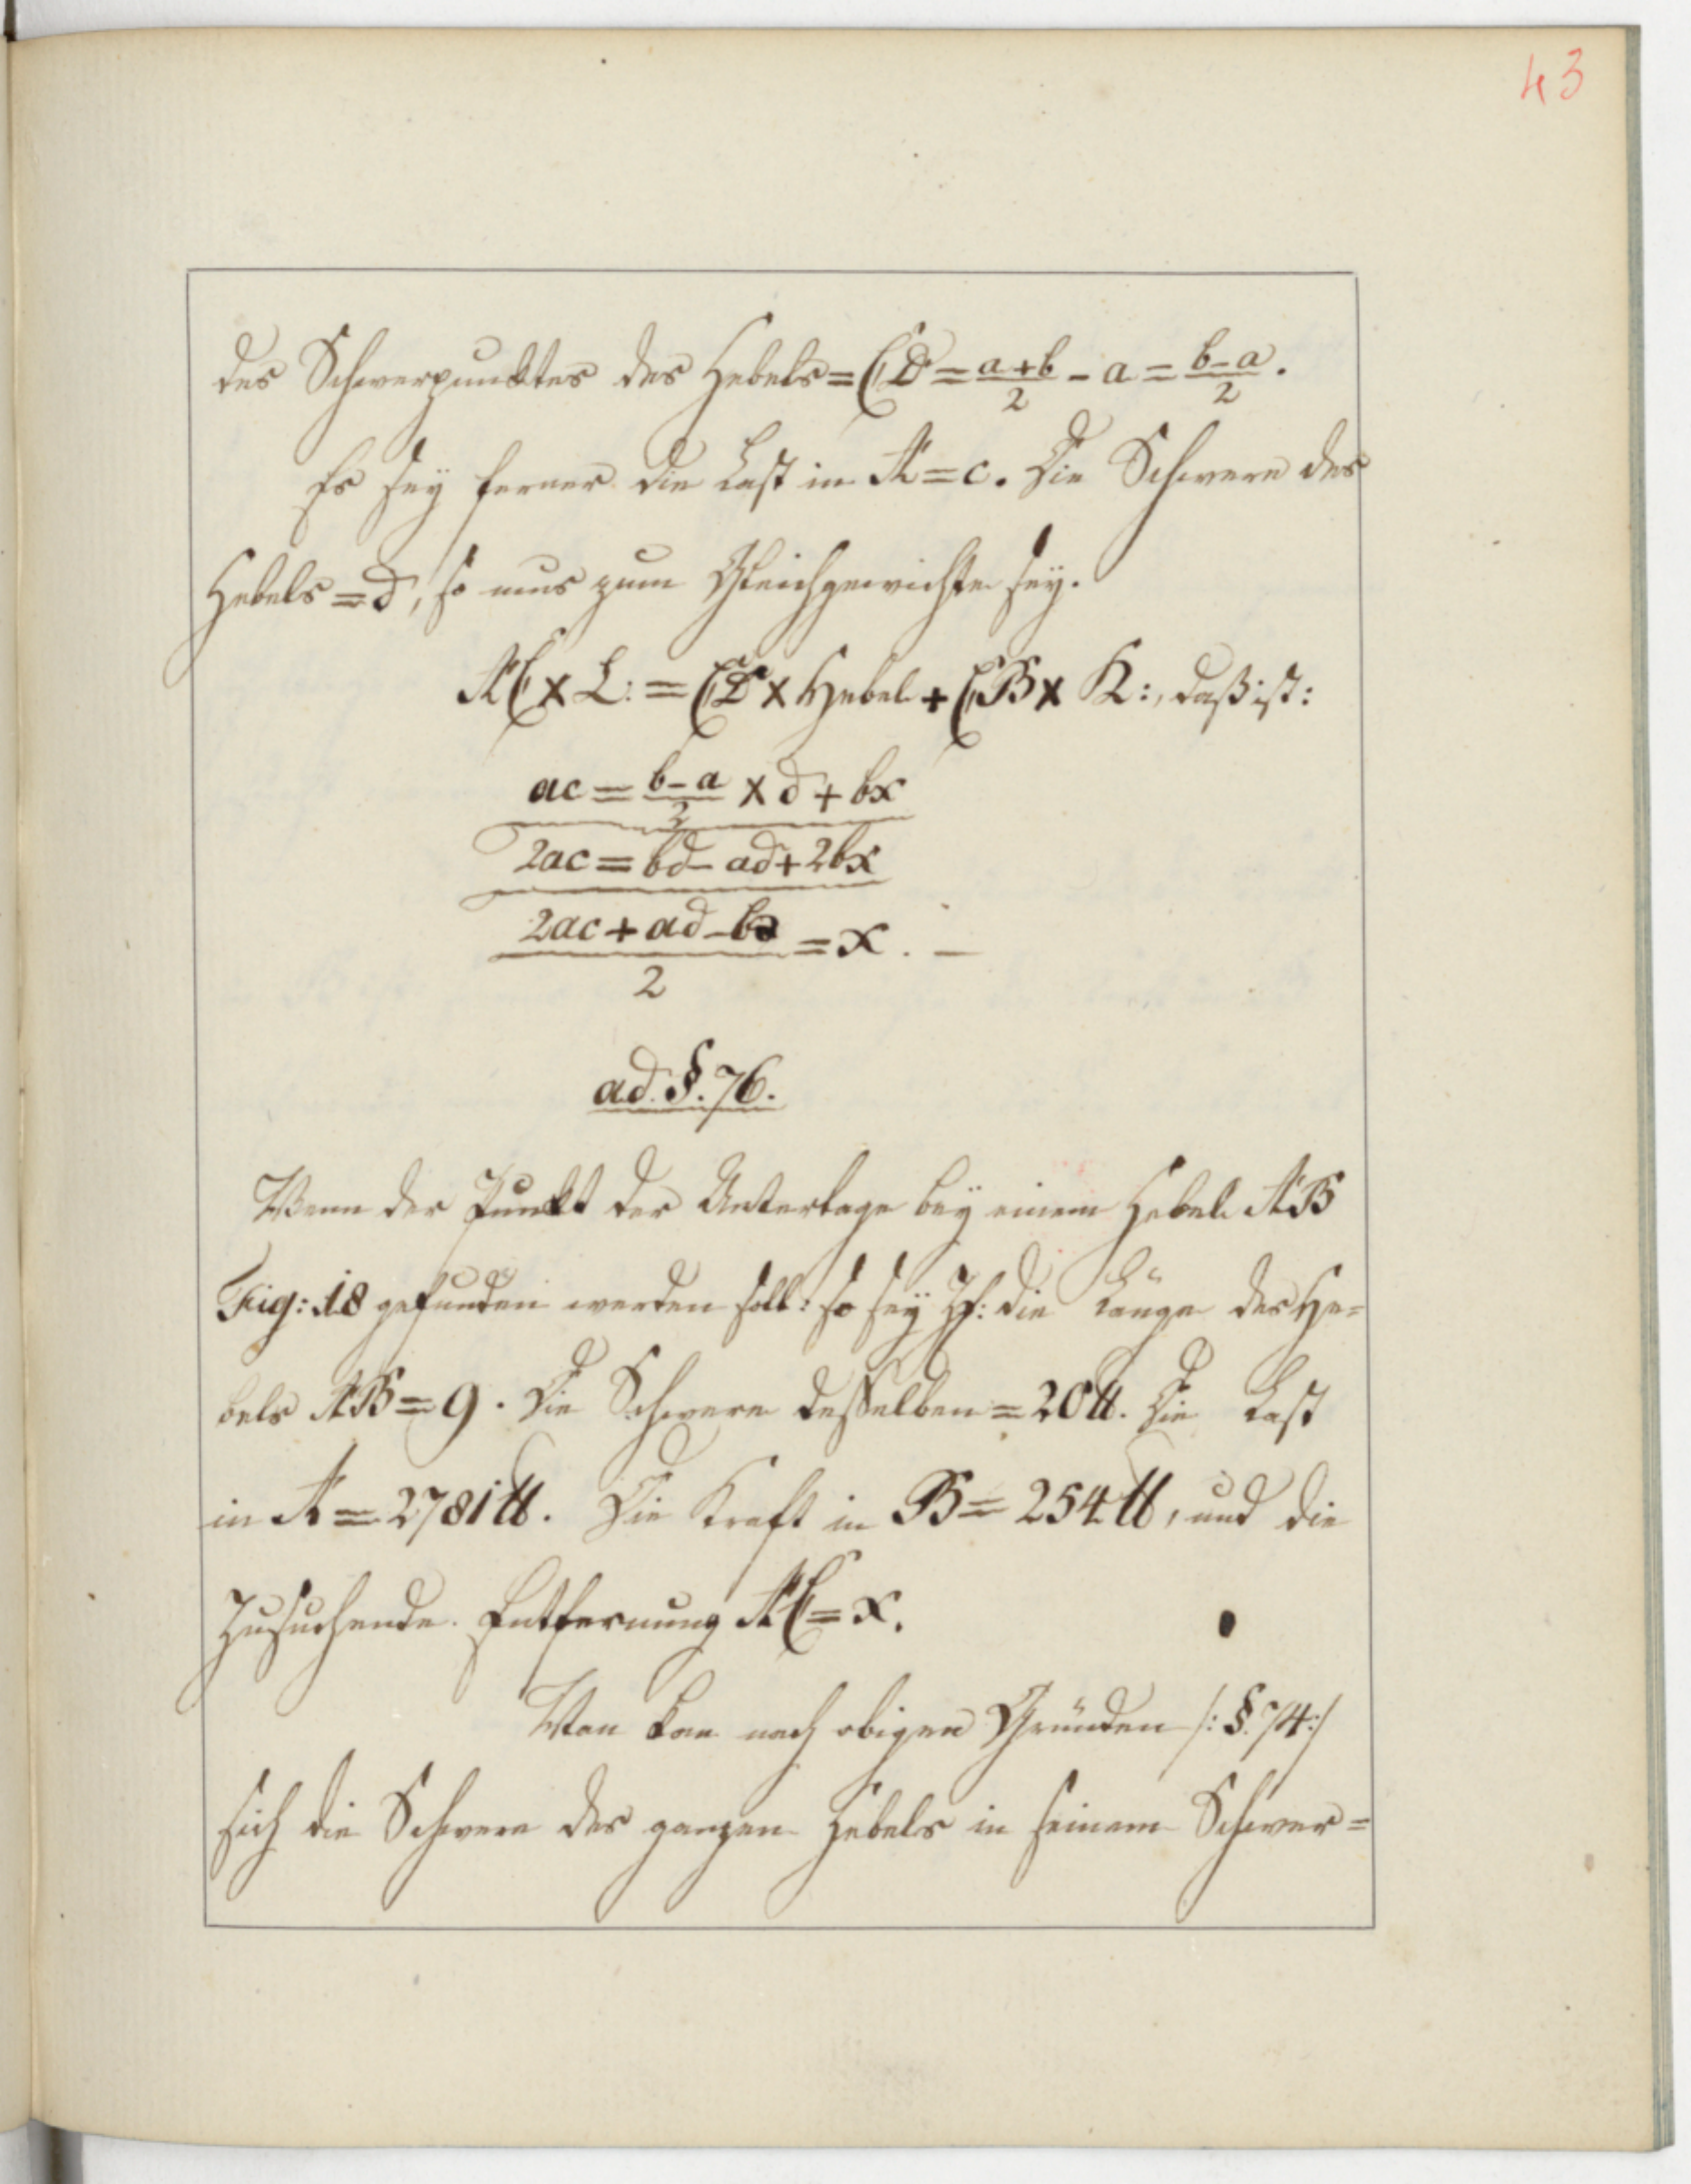 43
des Schwerpunktes des Hebels = CD = a+b/2 - a = b-a/2.
Es sey ferner die Last in A = c. Die Schwere des
Hebels = d, so mus zum Gleichgewichte sey.
AC × L: = CD × Hebel + CB × K:, daß ist:
ac = b-a/2 × d + bx
2ac = bd - ad + 2bx
2ac + ad - bd/2 = x. —
ad. §. 76.
Wenn der Punkt der Unterlage bey einem Hebel AB
Fig: 18 gefunden werden soll: so sey Zf: die Länge des He=
bels AB = 9. Die Schwere desselben = 20 ℔. Die Last
in A = 2781 ℔. Die Kraft in B = 254 ℔, und die
Zusuchende Entfernung AC = x.
Man kan nach obigen Gründen /: §. 74 :/
sich die Schwere des ganzen Hebels in seinem Schwer=